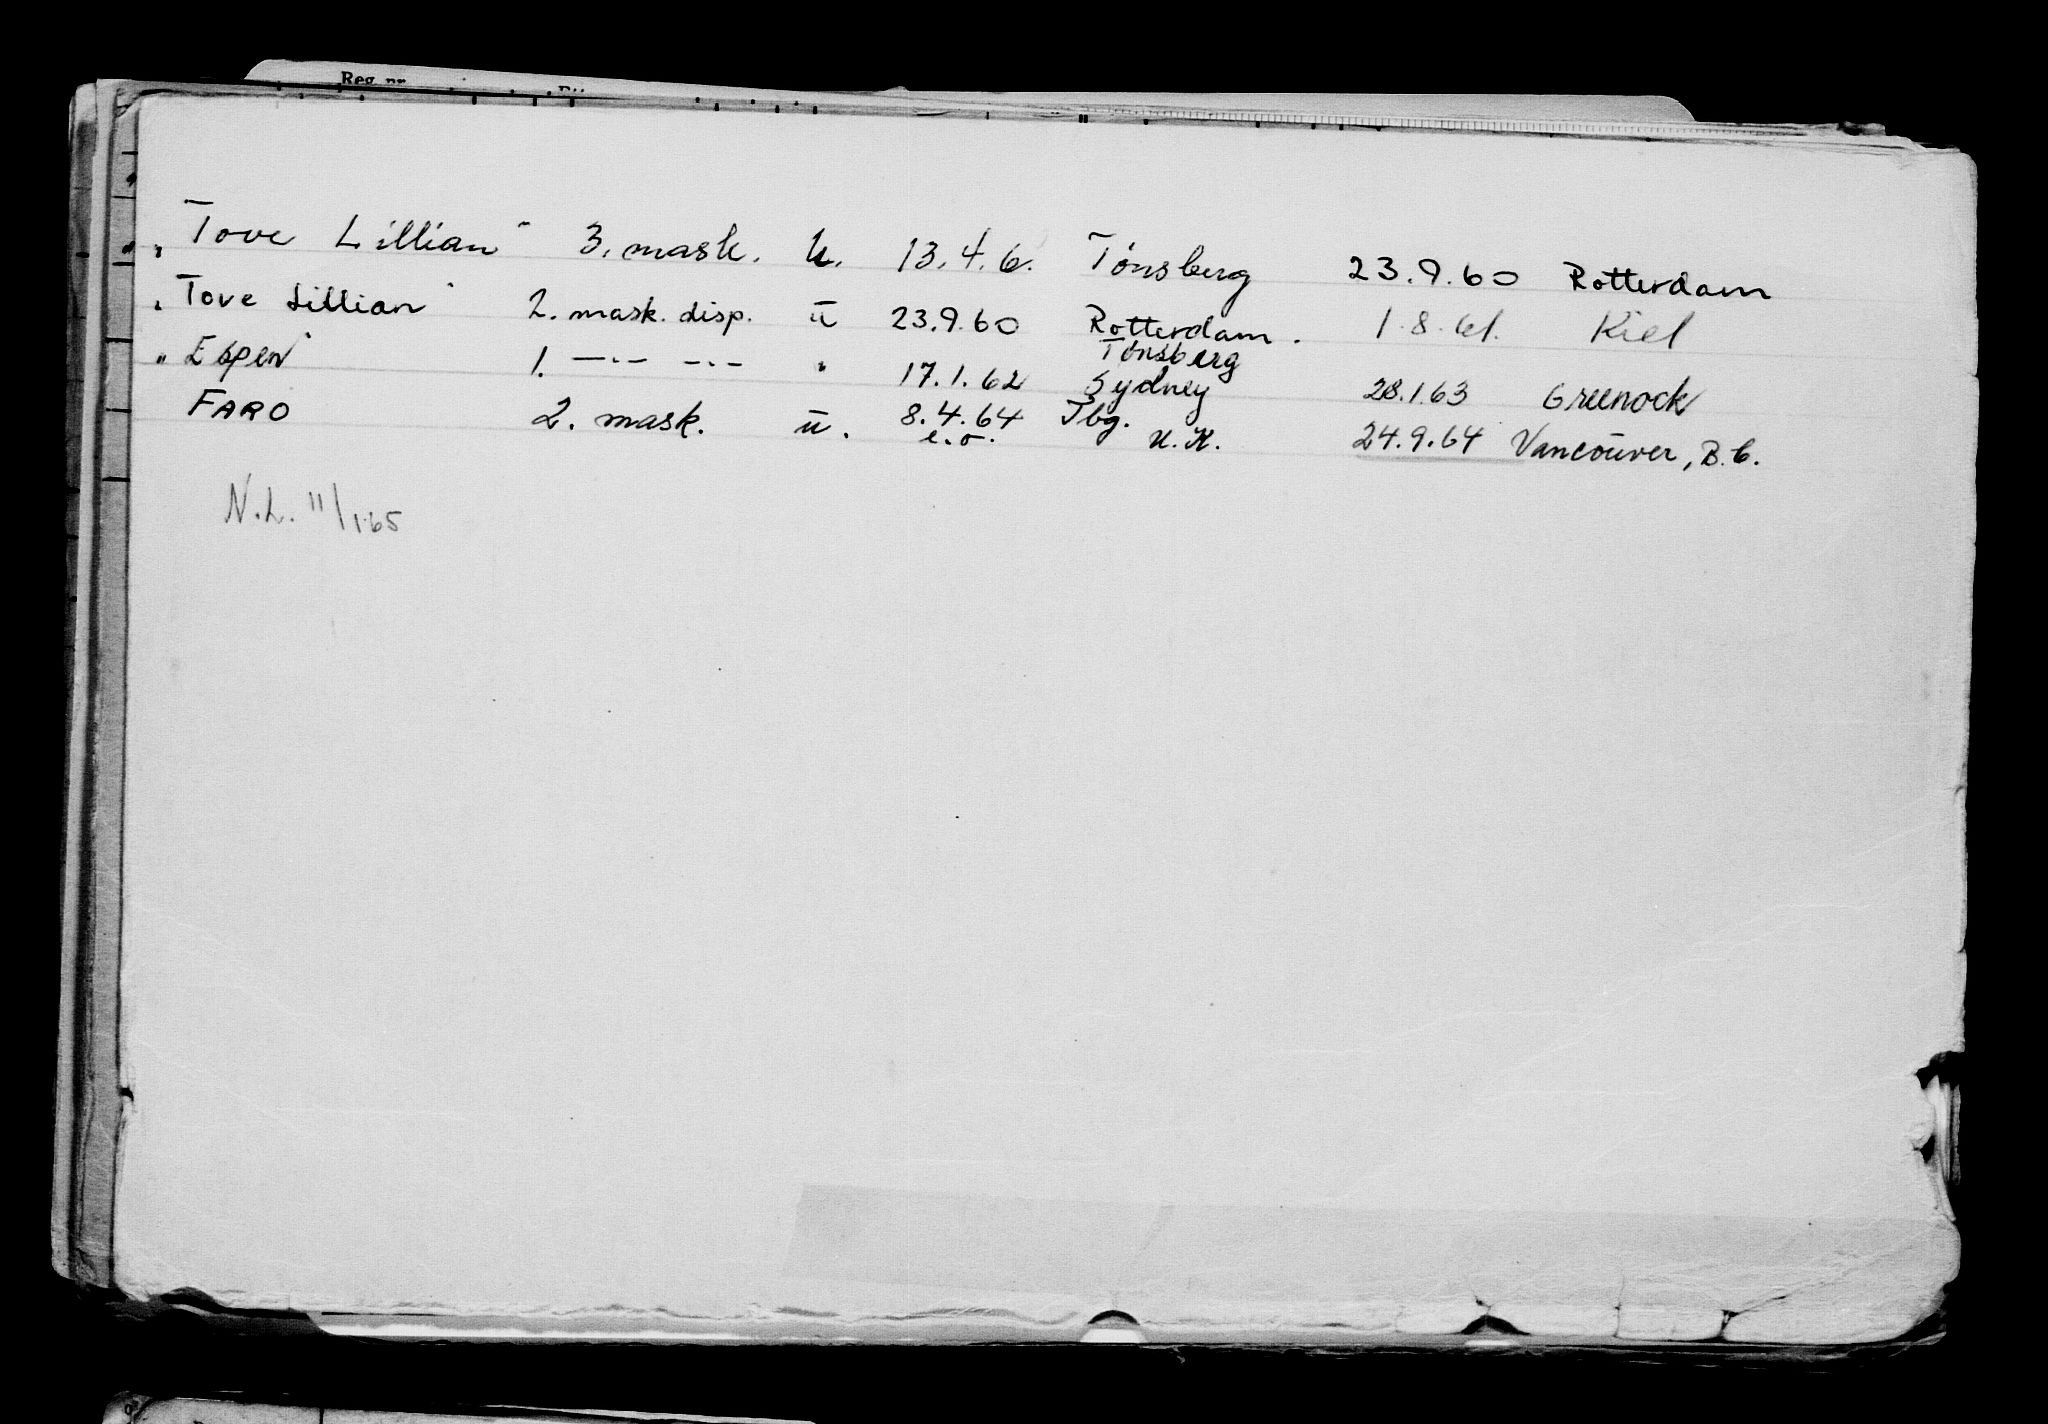 Reg. nr.
"Tove Lillian" 3. mask. u. 13.4.6. Tønsberg 23.9.60 Rotterdam
"Tove Lillian" 2. mask. disp. u 23.9.60 Rotterdam. 1.8.61. Kiel
"Espen" 1. —·— —·— " 17.1.62 Tønsberg Sydney 28.1.63 Greenock
FARO 2. mask. u. 8.4.64 Tbg. 24.9.64 Vancouver, B.C.
e.o. U.K.
N.L. 11/1.65